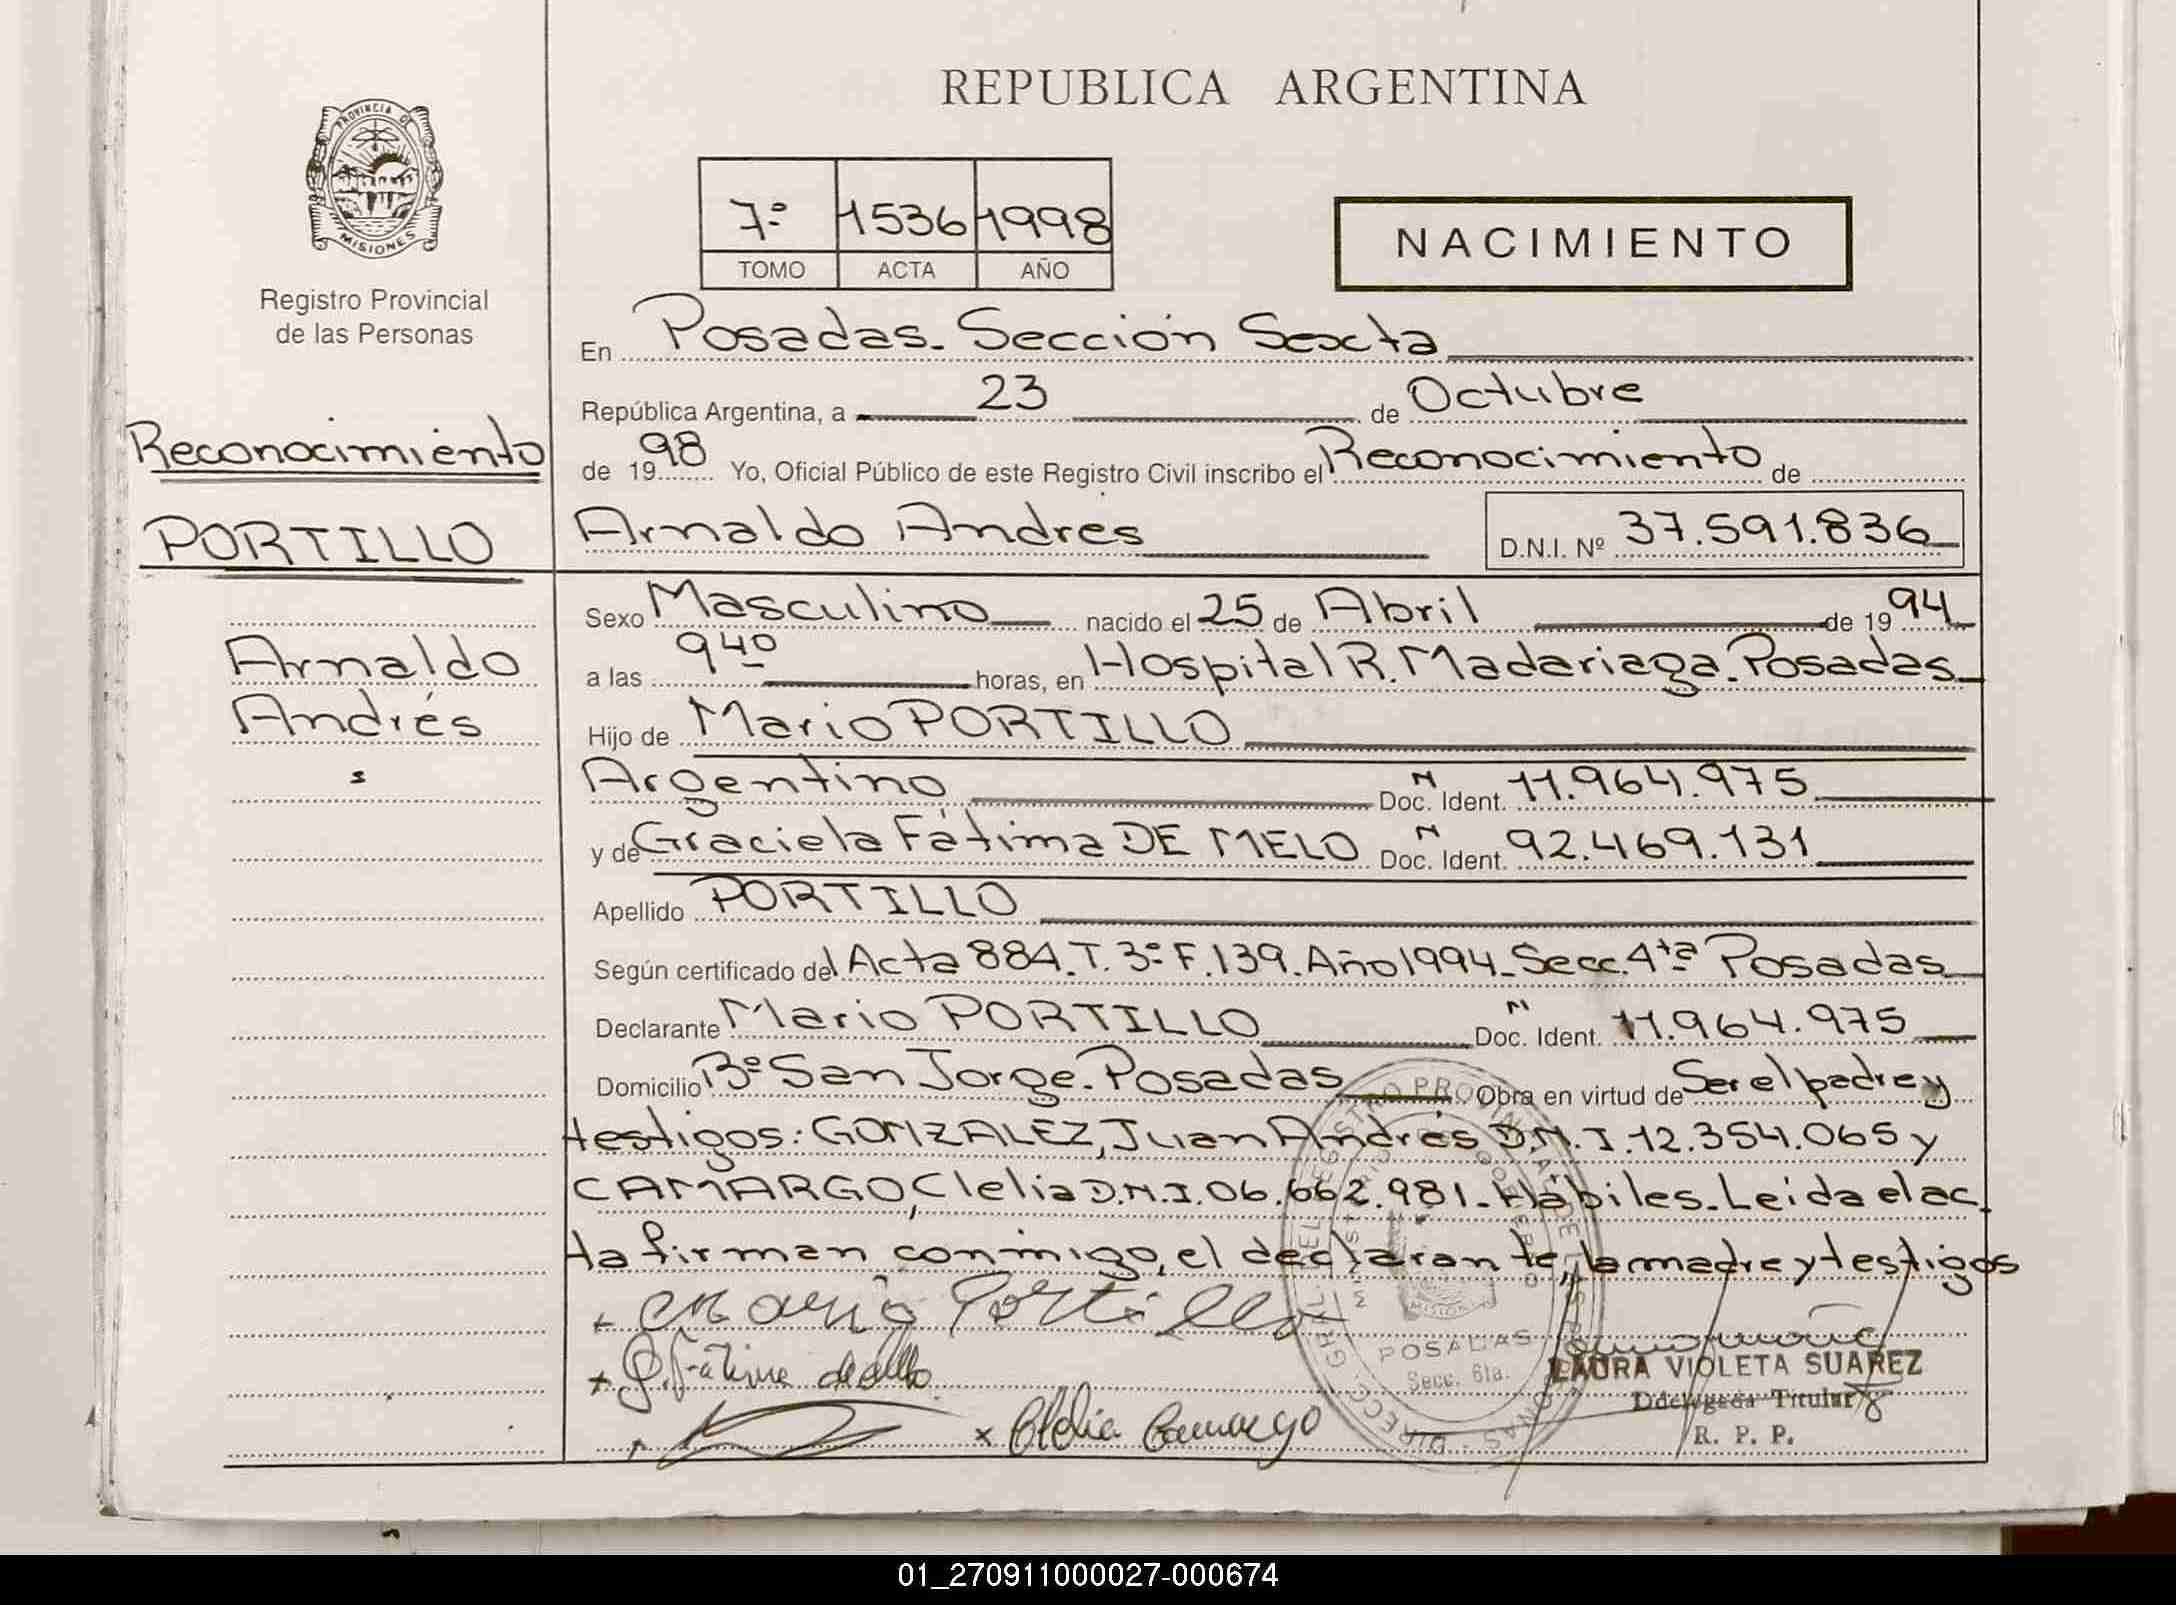 REPUBLICA ARGENTINA
PROVINCIA DE
MISIONES
Registro Provincial
de las Personas
7º 1536 1998
TOMO ACTA AÑO
NACIMIENTO
En Posadas. Sección Sexta
República Argentina, a 23 de Octubre
de 1998 Yo, Oficial Público de este Registro Civil inscribo el Reconocimiento de
Arnaldo Andrés D.N.I. Nº 37.591.836
Reconocimiento
PORTILLO
Arnaldo
Andrés
s
Sexo Masculino nacido el 25 de Abril de 1994
a las 9 40 horas, en Hospital R. Madariaga. Posadas
Hijo de Mario PORTILLO
Argentino Doc. N Ident. 11.964.975
y de Graciela Fátima DE MELO Doc. N Ident. 92.469.131
Apellido PORTILLO
Según certificado del Acta 884. T. 3º F. 139. Año 1994. Secc. 4ta Posadas
Declarante Mario PORTILLO Doc. N Ident. 11.964.975
Domicilio Bº San Jorge. Posadas Obra en virtud de Ser el padre y
testigos: GONZALEZ, Juan Andrés D.N.I. 12.354.065 y
CAMARGO, Clelia D.N.I. 06.662.981. Hábiles. Leida el ac
ta firman conmigo, el declarante, la madre y testigos
Mario Portillo
G. Fátima de Mello
x Clelia Camargo
POSADAS
Secc. 6ta.
LAURA VIOLETA SUAREZ
Delegada Titular
R. P. P.
01_270911000027-000674